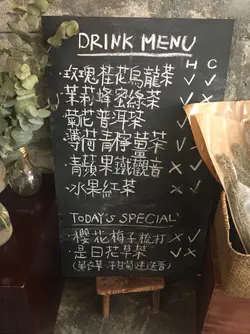 DRINK MENU
H C
·玫瑰桂花烏龍茶 ✓ ✓
·茉莉蜂蜜綠茶 ✓ ✓
·菊花普洱茶 ✓ ✓
·薄荷青檸薑茶 ✓ ✓
·青蘋果鐵觀音 × ✓
·水果紅茶 × ✓
TODAY'S SPECIAL
·櫻花梅子梳打 × ✓
·是日花草茶 ✓ ×